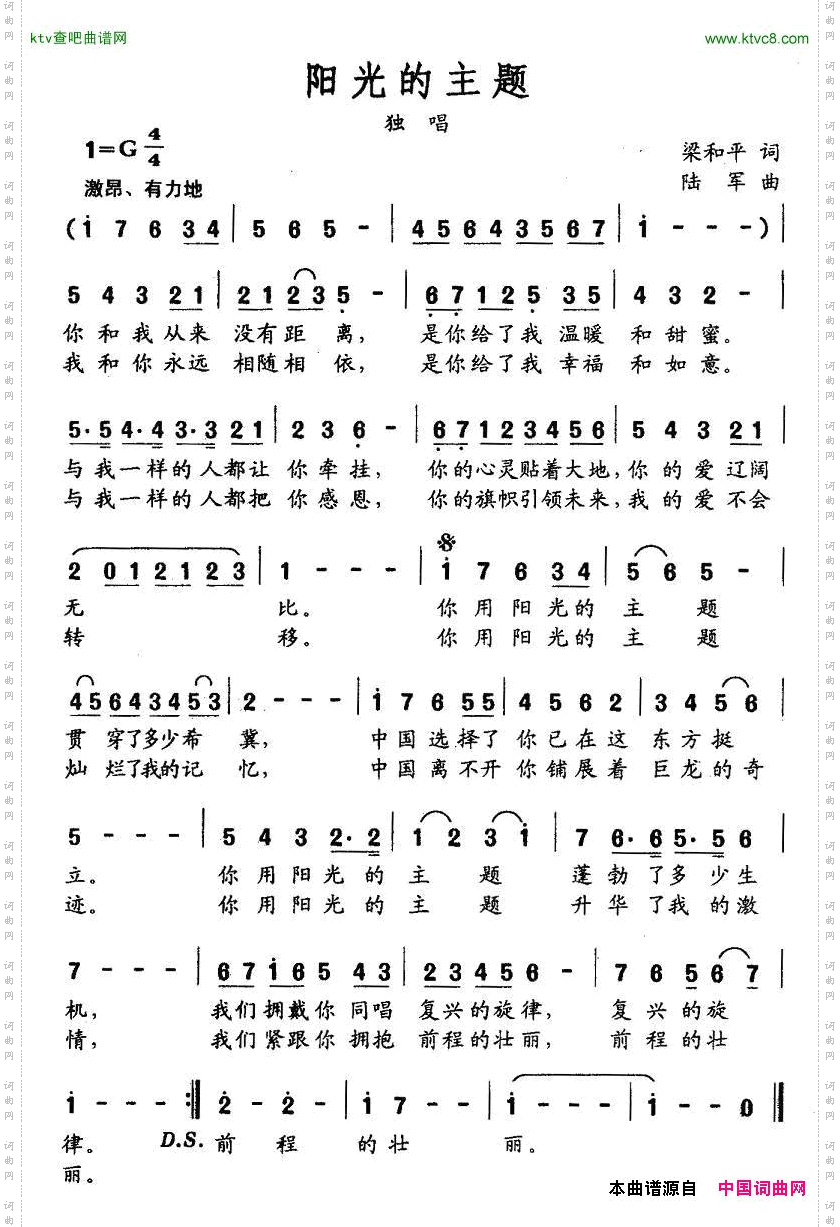 ktv查吧曲谱网 www.ktvc8.com
阳光的主题
独 唱
1=G 4/4
梁和平 词
激昂、有力地
陆 军 曲
(i 7 6 3 4 | 5 6 5 - | 4 5 6 4 3 5 6 7 | i - - - )|
5 4 3 2 1 | 2 1 2 3 5 - | 6 7 1 2 5 3 5 | 4 3 2 - |
你 和 我 从来 没有 距 离, 是你给了我 温暖 和 甜 蜜。
我 和 你 永远 相随 相 依, 是你给了我 幸福 和 如 意。
5· 5 4· 4 3· 3 2 1 | 2 3 6 - | 6 7 1 2 3 4 5 6 | 5 4 3 2 1 |
与我一样的人都让 你牵挂, 你的心灵贴着大地,你 的 爱 辽阔
与我一样的人都把 你感恩, 你的旗帜引领未来,我 的 爱 不会
2 0 1 2 1 2 3 | 1 - - - | i 7 6 3 4 | 5 6 5 - |
无 比。 你 用 阳 光的 主 题
转 移。 你 用 阳 光的 主 题
4 5 6 4 3 4 5 3 | 2 - - - | i 7 6 5 5 | 4 5 6 2 | 3 4 5 6 |
贯 穿了多少希 冀, 中 国 选 择了 你 已 在 这 东 方 挺
灿 烂了我的记 忆, 中 国 离 不开 你 铺 展 着 巨 龙 的 奇
5 - - - | 5 4 3 2· 2 | 1 2 3 i | 7 6· 6 5· 5 6 |
立。 你 用 阳 光 的 主 题 蓬 勃 了 多 少 生
迹。 你 用 阳 光 的 主 题 升 华 了 我 的 激
7 - - - | 6 7 i 6 5 4 3 | 2 3 4 5 6 - | 7 6 5 6 7 |
机, 我们 拥戴 你 同唱 复兴的旋律, 复 兴 的 旋
情, 我们 紧跟 你 拥抱 前程的壮丽, 前 程 的 壮
i - - - :‖ 2 - 2 - | i 7 - - | i - - - | i - - 0 ‖
律。 D.S. 前 程 的 壮 丽。
丽。
本曲谱源自 中国词曲网